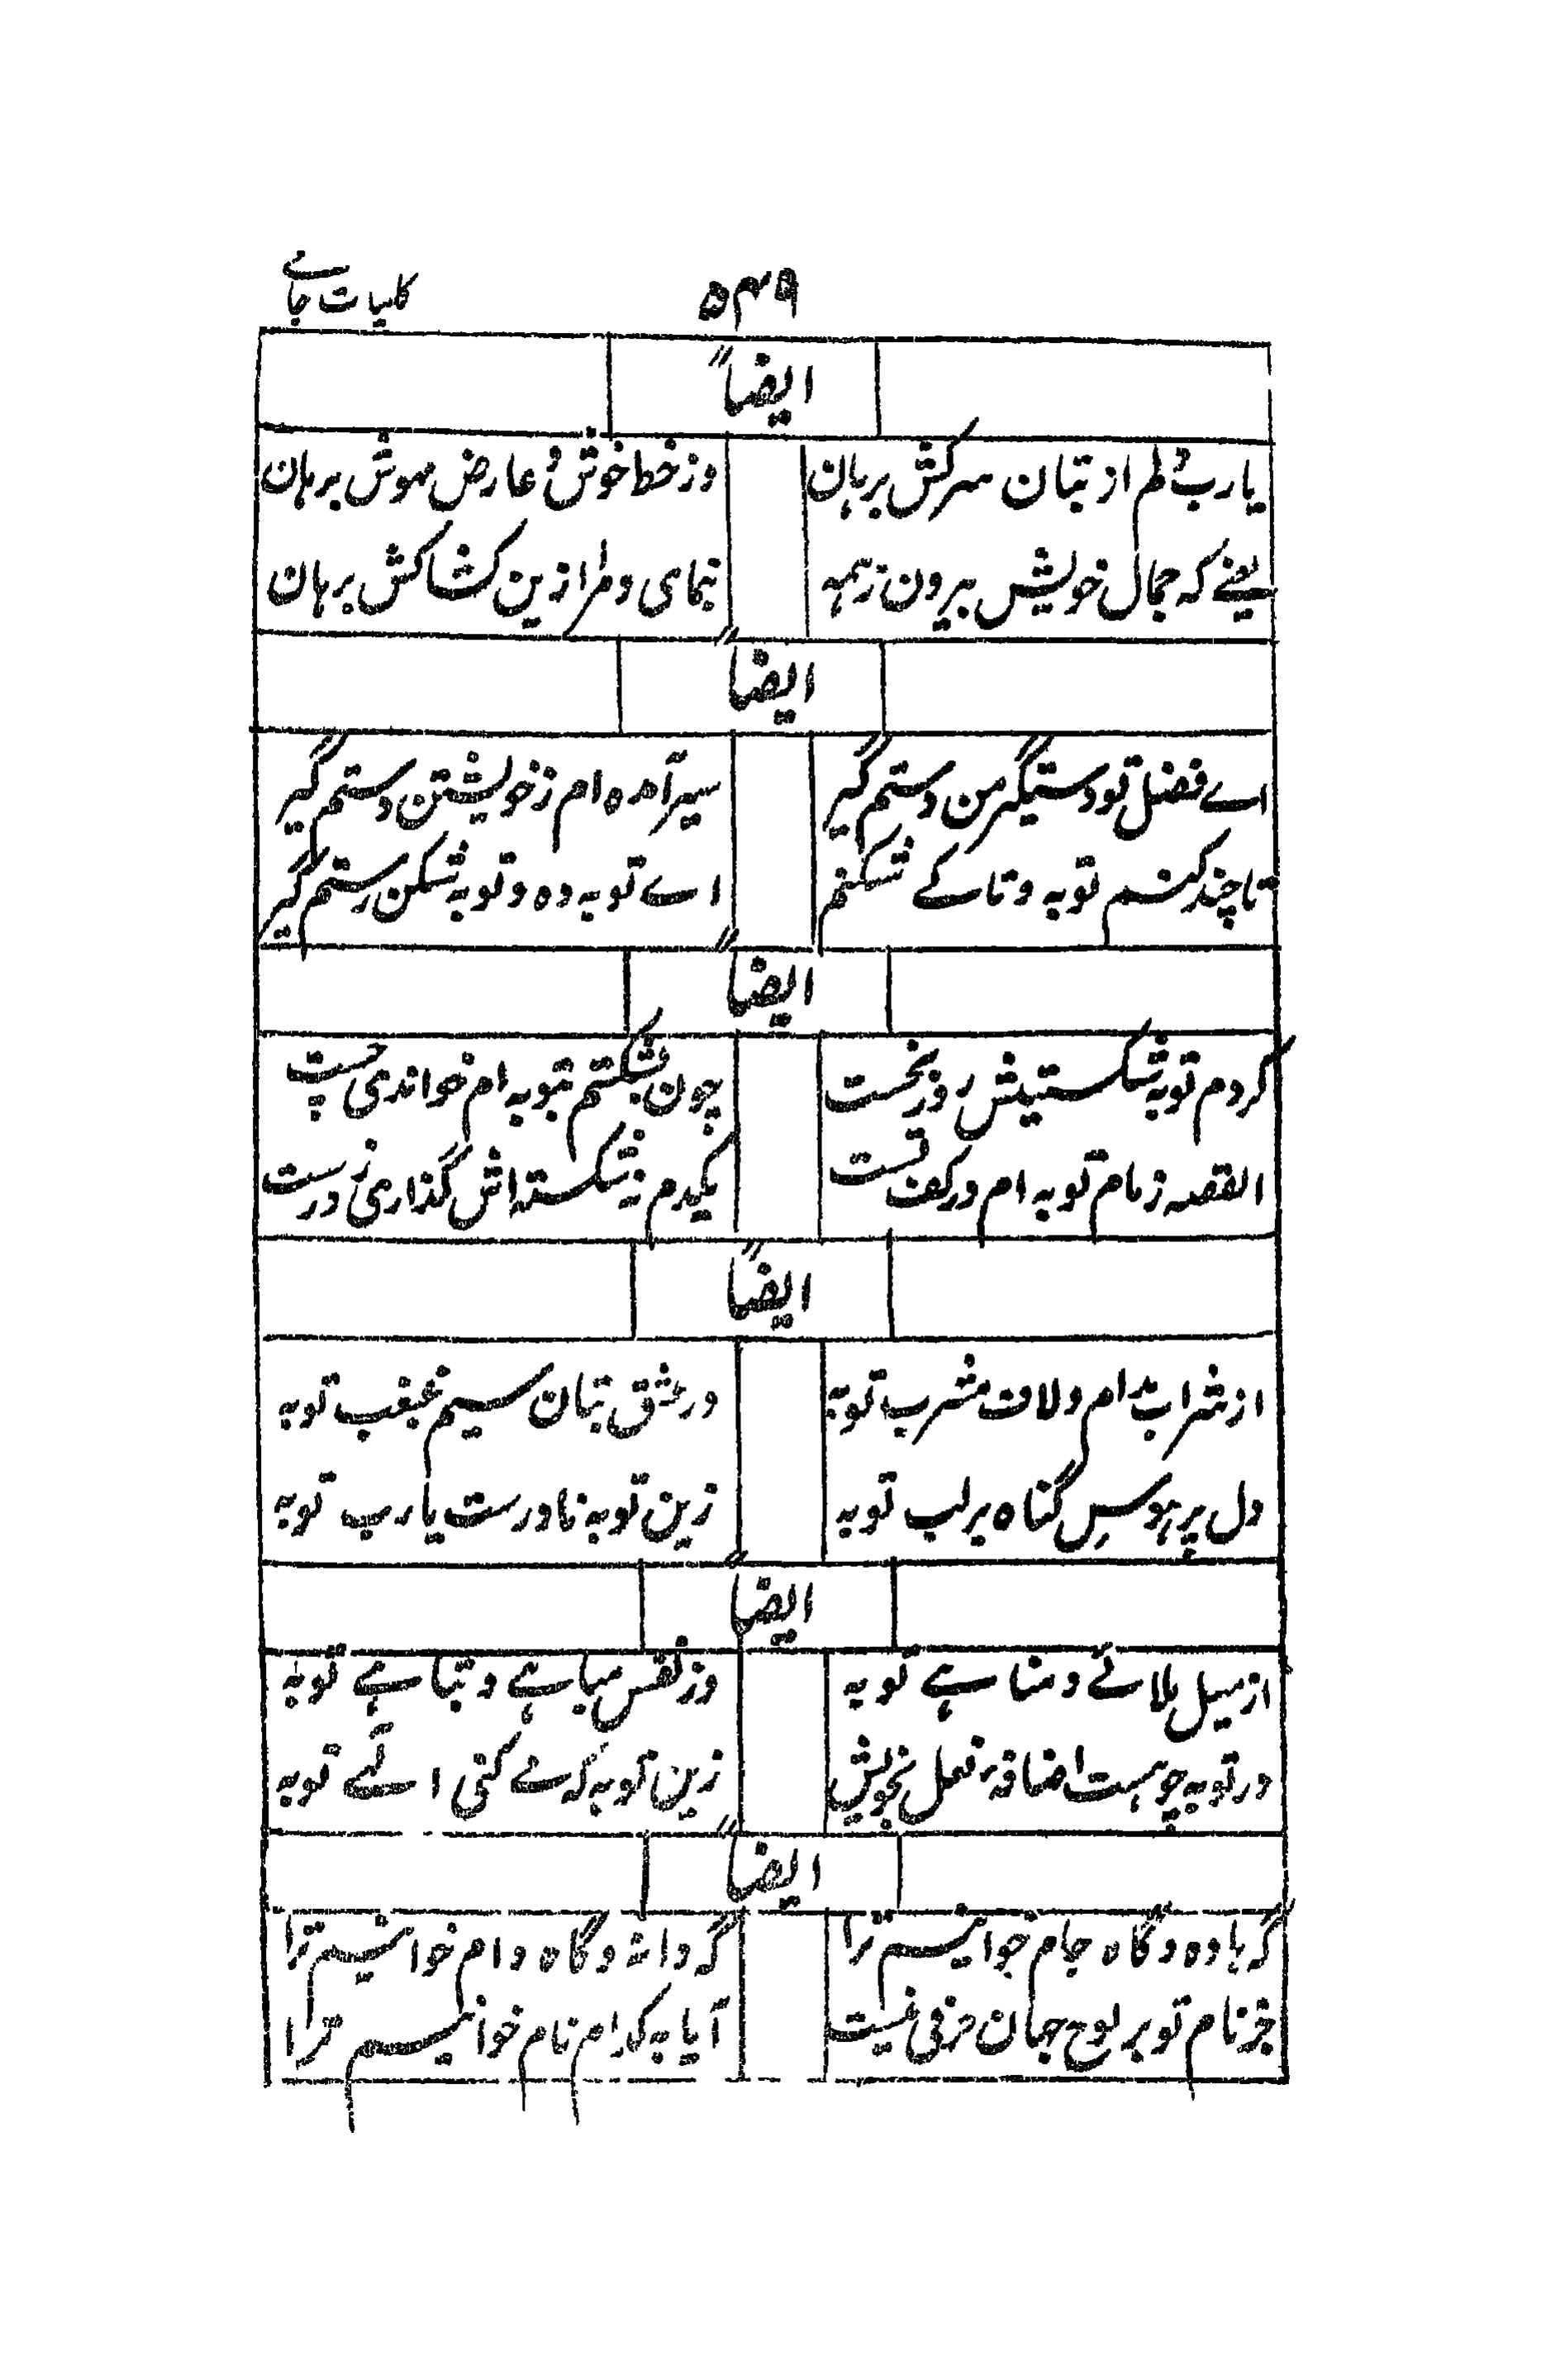 ۵۴۹ کلیات جامے
ایضاً
یارب دلم از بتان سرکش برہان وز خط خوش و عارض مہوش برہان
یعنے کہ جمال خویش بیرون ز ہمہ بنمای و مرا ازین کشاکش برہان
ایضاً
اے فضل تو دستگیر من دستم گیر سیر آمدہ ام ز خویشتن دستم گیر
تا چند کنم توبہ و تا کے شکنم اے توبہ دہ و توبہ شکن رستم گیر
ایضاً
کردم توبہ شکستیش روز نخست چون بشکستم بتوبہ ام خواندی چست
القصہ زمام توبہ ام در کف تست یکدم نہ شکستہ اش گذاری نہ درست
ایضاً
از شراب مدام و لاف مشرب توبہ در عشق بتان سیم غبغب توبہ
دل پر ہوسِ گناہ بر لب توبہ زین توبہ نادرست یارب توبہ
ایضاً
از میل بلائے و مناہے توبہ وز نفس مباہے و تباہے توبہ
در توبہ چو ہست اضافہ فعل بخویش زین توبہ کہ مے کنی الٰہے توبہ
ایضاً
گہ بادہ و گاہ جام خوانیم ترا گہ دانہ و گاہ دام خوانیم ترا
جز نام تو بر لوح جہان حرفی نیست آیا بہ کدام نام خوانیم ترا